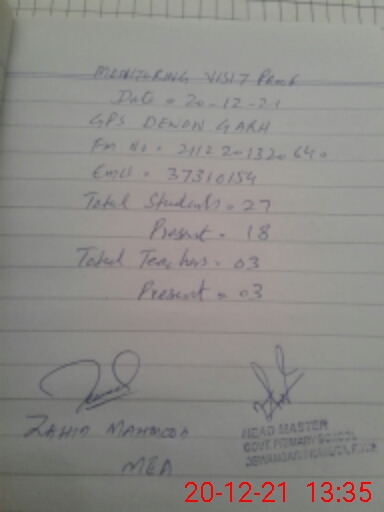 MONITORING VISIT Proof
Date = 20-12-21
GPS DEWAN GARH
EMIS = 37310154
Total Students = 27
Present = 18
Total Teachers = 03
Present = 03
ZAHID MAHMOOD
MEA
HEAD MASTER
GOVT. PRIMARY SCHOOL
20-12-21 13:35